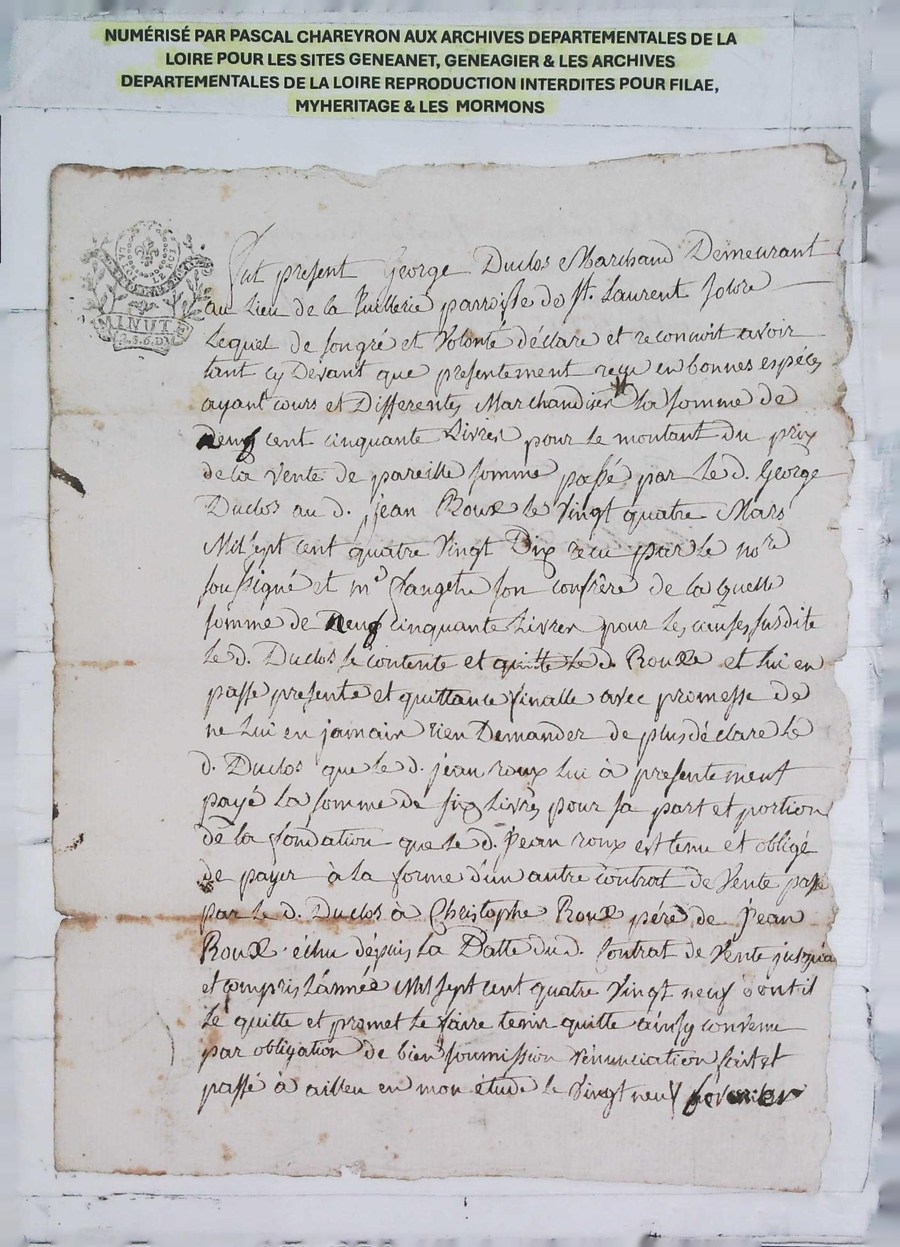 NUMÉRISÉ PAR PASCAL CHAREYRON AUX ARCHIVES DEPARTEMENTALES DE LA
LOIRE POUR LES SITES GENEANET, GENEAGIER & LES ARCHIVES
DEPARTEMENTALES DE LA LOIRE REPRODUCTION INTERDITES POUR FILAE,
MYHERITAGE & LES MORMONS
MINUT
Fut present George Duclos Marchand Demeurant
au Lieu de la Tuillerie parroisse de St. Laurent Solore
Lequel de son gré et Volonté déclare et reconnoit avoir
tant cy Devant que présentement reçu en bonnes espéces
ayant cours et Differentes Marchandises la somme de
Neuf cent cinquante Livres pour le montant du prix
de la vente de pareille somme passé par Le d. George
Duclos au d. jean Roux le Vingt quatre Mars
Mil sept cent quatre Vingt Dix recu par le nore
soussigné et md son confrère de la quelle
somme de Neuf cinquante Livres pour les causes susdite
Le d. Duclos se contente et quitte le d. Roux et lui en
passe presente et quittance finalle avec promesse de
ne Lui en jamais rien Demander de plus déclare Le
d. Duclos que le d. jean roux lui à présentement
payé la somme de six Livres pour sa part et portion
de la fondation que le d. Jean roux est tenu et obligé
de payer à la forme d'un autre contrat de Vente passé
par le d. Duclos à Christophe Roux pére de Jean
Roux échu dépuis la Datte dud. Contrat de Vente jusqua
et compris L'année Mil sept cent quatre Vingt neuf dont il
le quitte et promet le faire tenir quitte ainsy convenu
par obligation de bien soumission rénunciation fait et
passé à ailleu en mon étude le Vingt neuf